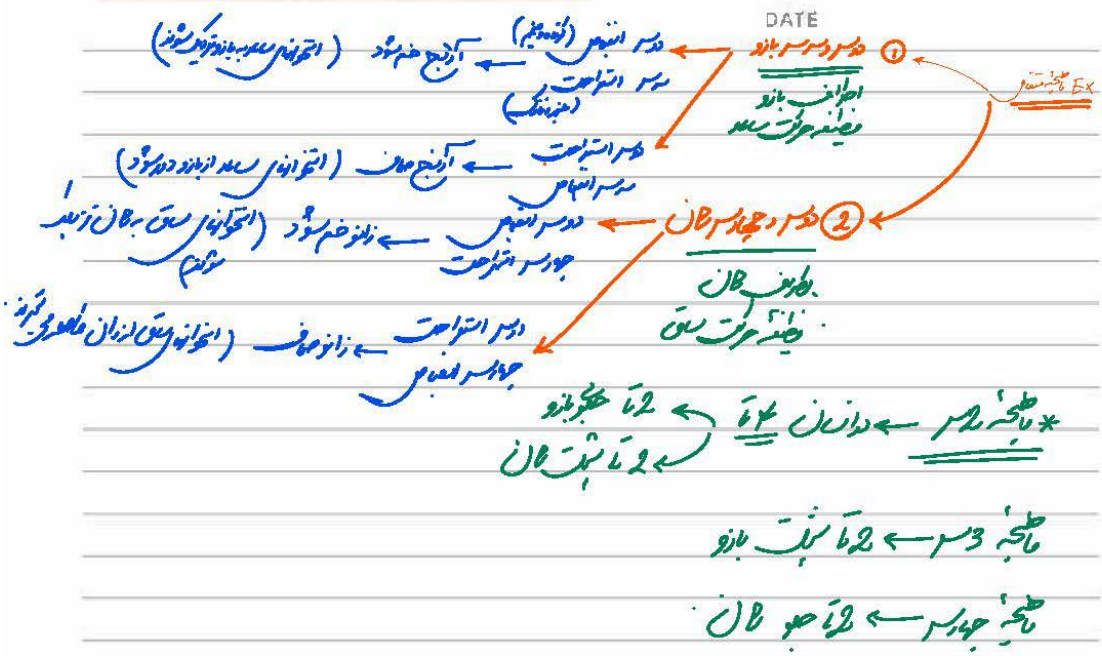 DATE
Ex ماهیچه متقابل
① دوسر و سه سر بازو
اطراف بازو
وظیفه حرکت ساعد
دوسر انقباض (کوتاه و ضخیم)
سه سر استراحت
← آرنج خم شود (استخوانهای ساعد به بازو نزدیک شوند)
دوسر استراحت
سه سر انقباض
← آرنج صاف (استخوانهای ساعد از بازو دور شود)
② دوسر و چهارسر ران
اطراف ران
وظیفهٔ حرکت ساق
دوسر انقباض
چهارسر استراحت
← زانو خم شود (استخوانهای ساق به ران نزدیک شوند)
دوسر استراحت
چهارسر انقباض
← زانو صاف (استخوانهای ساق از ران فاصله می گیرند)
* ماهیچهٔ 2سر ← در انسان ۴ تا ← 2 تا جلو بازو
← 2 تا پشت ران
ماهیچهٔ 3سر ← 2 تا پشت بازو
ماهیچهٔ چهارسر ← 2 تا جلو ران